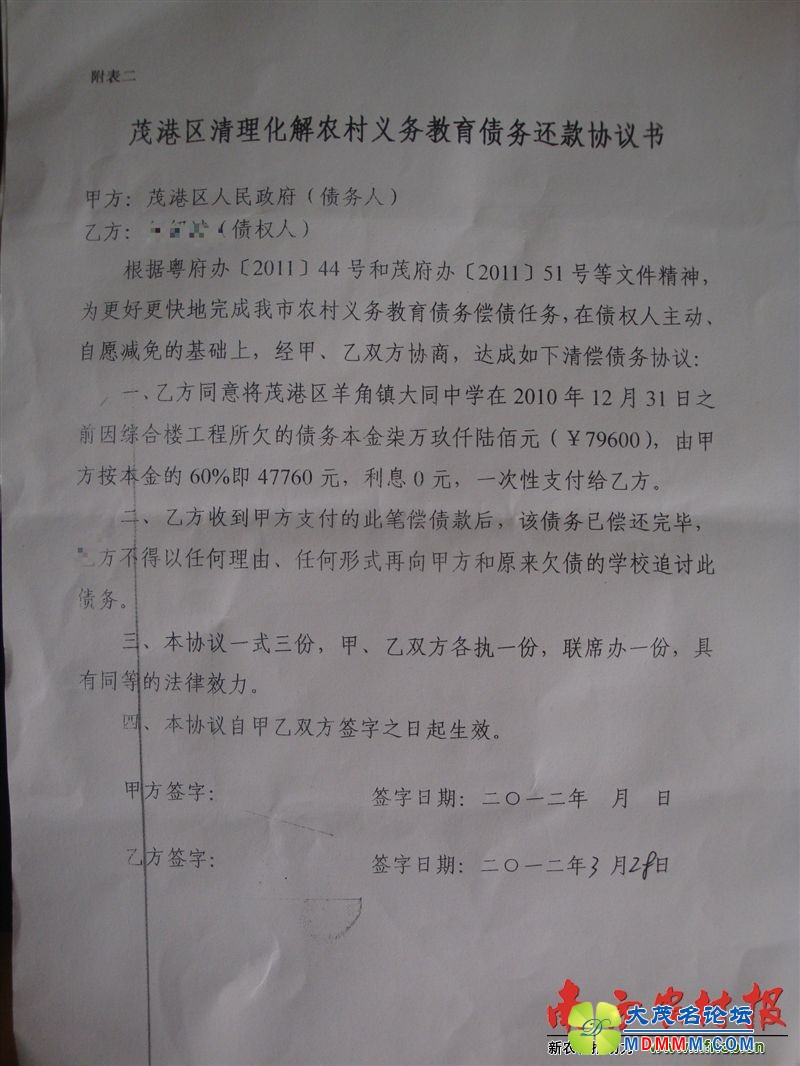 附表二
茂港区清理化解农村义务教育债务还款协议书
甲方：茂港区人民政府（债务人）
乙方：（债权人）
根据粤府办〔2011〕44号和茂府办〔2011〕51号等文件精神，
为更好更快地完成我市农村义务教育债务偿债任务，在债权人主动、
自愿减免的基础上，经甲、乙双方协商，达成如下清偿债务协议：
一、乙方同意将茂港区羊角镇大同中学在2010年12月31日之
前因综合楼工程所欠的债务本金柒万玖仟陆佰元（￥79600），由甲
方按本金的60%即47760元，利息0元，一次性支付给乙方。
二、乙方收到甲方支付的此笔偿债款后，该债务已偿还完毕，
乙方不得以任何理由、任何形式再向甲方和原来欠债的学校追讨此
债务。
三、本协议一式三份，甲、乙双方各执一份，联席办一份，具
有同等的法律效力。
四、本协议自甲乙双方签字之日起生效。
甲方签字： 签字日期：二〇一二年 月 日
乙方签字： 签字日期：二〇一二年3月28日
南方农村报
大茂名论坛
MDMMM.COM